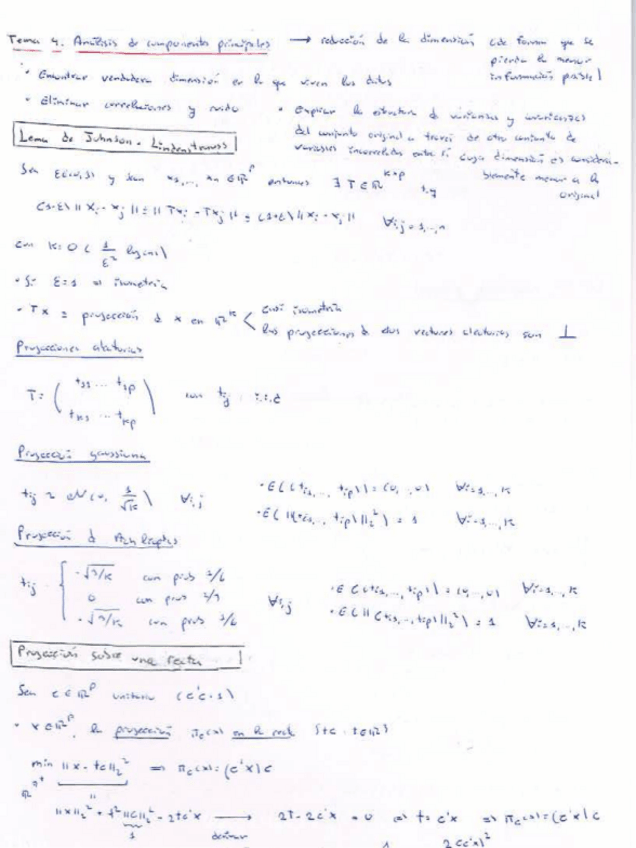 Tema 4. Análisis de componentes principales → reducción de la dimensión (de forma que se pierda la menor información posible)
· Encontrar verdadera dimensión en la que viven los datos
· Eliminar correlaciones y ruido
· Explicar la estructura de varianzas y covarianzas del conjunto original a través de otro conjunto de variables incorreladas entre sí cuya dimensión es considerablemente menor a la original
Lema de Johnson-Lindenstrauss
Sea ε∈(0,1) y sean x₁, ..., xₙ ∈ ℝᵖ entonces ∃ T ∈ ℝᵏˣᵖ t.q
(1-ε) ||xᵢ - xⱼ|| ≤ ||Txᵢ - Txⱼ|| ≤ (1+ε) ||xᵢ - xⱼ|| ∀i,j = 1,..,n
con k = O( 1/ε² log(n) )
· Si ε=1 ⇒ isometría
· Tx = proyección de x en ℝᵏ < casi isometría
las proyecciones de dos vectores aleatorios son ⊥
Proyecciones aleatorias
T = ( t₁₁ ... t₁ₚ
tₖ₁ ... tₖₚ ) con tᵢⱼ i.i.d
Proyección gaussiana
tᵢⱼ ~ N(0, 1/√k) ∀i,j
· E( (tᵢ₁, ..., tᵢₚ) ) = (0,..,0) ∀i=1,..,k
· E( ||(tᵢ₁, ..., tᵢₚ)||₂² ) = 1 ∀i=1,..,k
Proyección de Achlioptas
tᵢⱼ = { -√3/k con prob 1/6
0 con prob 2/3
-√3/k con prob 1/6 ∀i,j
· E( (tᵢ₁, ..., tᵢₚ) ) = (0,..,0) ∀i=1,..,k
· E( ||(tᵢ₁, ..., tᵢₚ)||₂² ) = 1 ∀i=1,..,k
Proyección sobre una recta
Sea c ∈ ℝᵖ unitario (c'c=1)
· x ∈ ℝᵖ, la proyección π_c(x) en la recta {tc : t∈ℝ}
min ||x - tc||₂² ⇒ π_c(x) = (c'x)c
||x||₂² + t²||c||₂² - 2tc'x → 2t - 2c'x = 0 ⇒ t = c'x ⇒ π_c(x) = (c'x)c
1 derivar
2(c'x)²